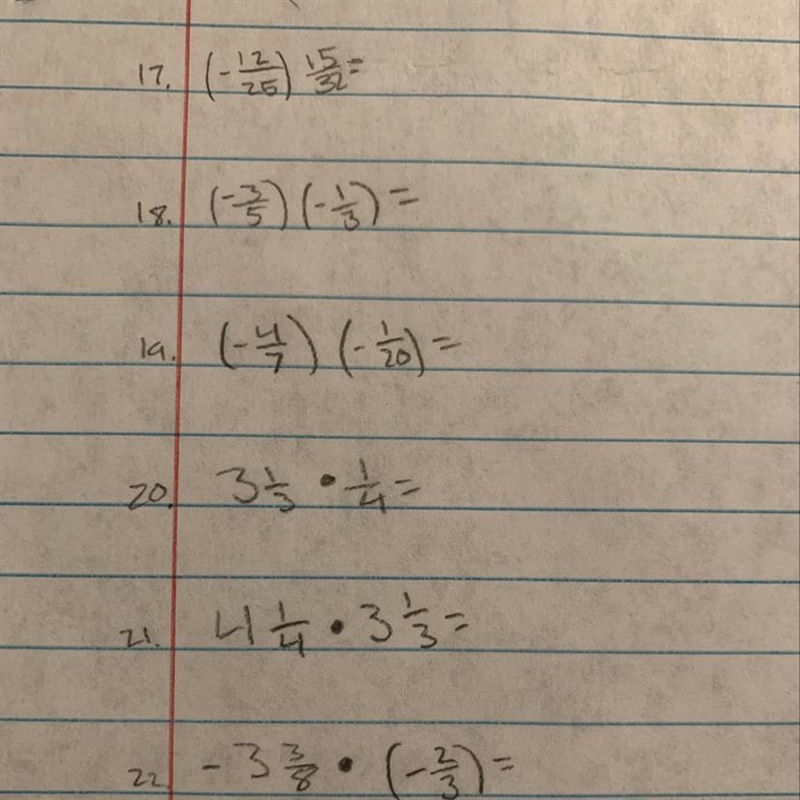 17. (-12/25) 15/32=
18. (-3/5)(-1/3)=
19. (-4/7) (-1/20)=
20. 3 1/3 • 1/4=
21. 4 1/4 • 3 1/3=
22 -3 3/8 • (-2/3)=